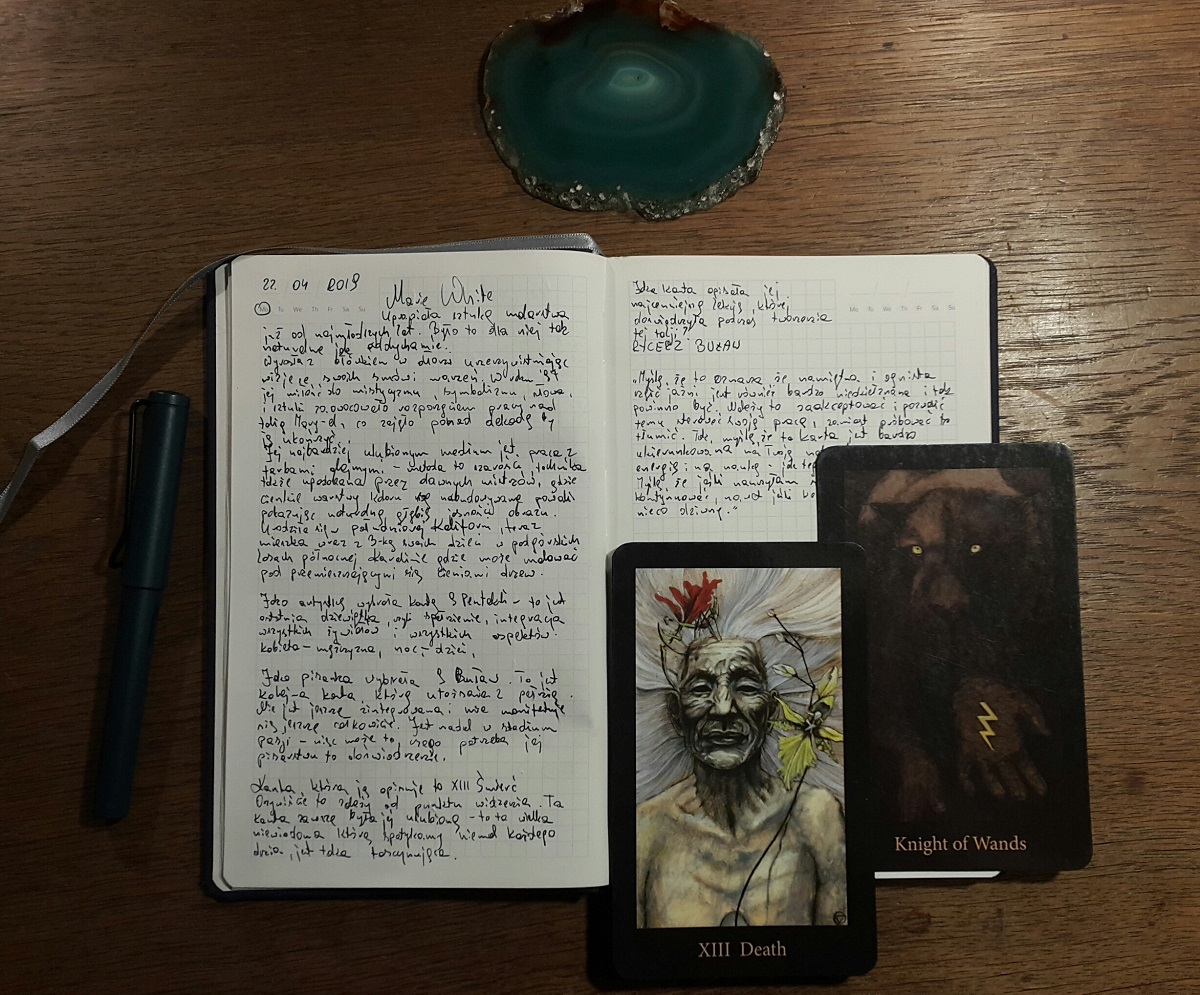 22. 04 2019
Mo Tu We Th Fr Sa Su
Marie White
sztukę malarstwa
już od najmłodszych lat. Było to dla niej tak
naturalne jak oddychanie.
z ołówkiem w dłoni urzeczywistniając
wizje ze swoich snów i marzeń. W roku '94
jej miłość do mistycyzmu, symbolizmu, słowa,
i sztuki zaowocowała rozpoczęciem pracy nad
talią Mary-el, co zajęło ponad dekadę by
ją ukończyć.
Jej najbardziej ulubionym medium jest praca z
farbami olejnymi. - metoda to technika
także przez dawnych mistrzów, gdzie
cienkie warstwy koloru są nabudowywane powoli
pokazując naturalną głębię jasności obrazu.
Urodziła się w południowej Kaliforn, teraz
mieszka wraz z 3-ką swoich dzieci w podgórskich
lasach północnej Karoliny gdzie może malować
pod przemieszczającymi się cieniami drzew.
Jako artystkę wybrała kartę 9 Pentakli - to jest
ostatnia dziewiątka, czyli spełnienie, integracja
wszystkich żywiołów i wszystkich aspektów
kobieta - mężczyzna, noc - dzień,
Jako pisarka wybrała 9 Buław. To jest
kolejna karta którą utożsamia z
Nie jest jeszcze zintegrowana i nie manifestuje
się jeszcze całkowicie. Jest nadal w stadium
pasji - więc może to czego potrzeba jej
pisarstwu to doświadczenie.
Karta, która ją opisuje to XIII Śmierć
Oczywiście to zależy od punktu widzenia. Ta
karta zawsze była jej ulubioną - to ta wielka
niewiadoma którą spotykamy niemal każdego
dnia, jest taka fascynująca.
Jaka karta opisała jej
najcenniejszą lekcję, której
doświadczyła podczas tworzenia
tej talii?
RYCERZ BUŁAW
Mo Tu We Th Fr Sa Su
"Myślę, że to oznacza, że namiętna i ognista
część jaźni jest również bardzo niedziałana i taka
powinna być. Należy to zaakceptować i pozwolić
temu sterować swoją pracę, zamiast próbować to
tłumić. Tak, myślę że ta karta jest bardzo
ukierunkowana na Twoją
energię i na naukę - jak
Myślę że jeśli
kontynuować, nawet jeśli
nieco dziwne."
XIII Death
Knight of Wands